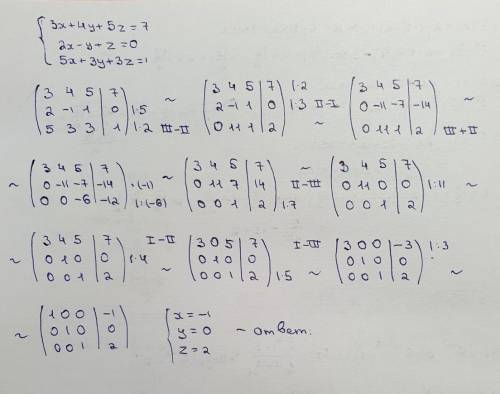 3x+4y+5z=7
2x-y+z=0
5x+3y+3z=1
3 4 5 | 7
2 -1 1 | 0 | ·5
5 3 3 | 1 | ·2 III-II
~
3 4 5 | 7 | ·2
2 -1 1 | 0 | ·3 II-I
0 11 1 | 2
~
3 4 5 | 7
0 -11 -7 | -14
0 11 1 | 2 III+II
~
~
3 4 5 | 7
0 -11 -7 | -14 ·(-1)
0 0 -6 | -12 | :(-6)
~
3 4 5 | 7
0 11 7 | 14
0 0 1 | 2 | ·7
~
II-III
3 4 5 | 7
0 11 0 | 0 | :11
0 0 1 | 2
~
~
3 4 5 | 7
0 1 0 | 0 | ·4
0 0 1 | 2
I-II
~
3 0 5 | 7
0 1 0 | 0
0 0 1 | 2 | ·5
I-III
~
3 0 0 | -3 | :3
0 1 0 | 0
0 0 1 | 2
~
~
1 0 0 | -1
0 1 0 | 0
0 0 1 | 2
x=-1
y=0
z=2
- ответ.